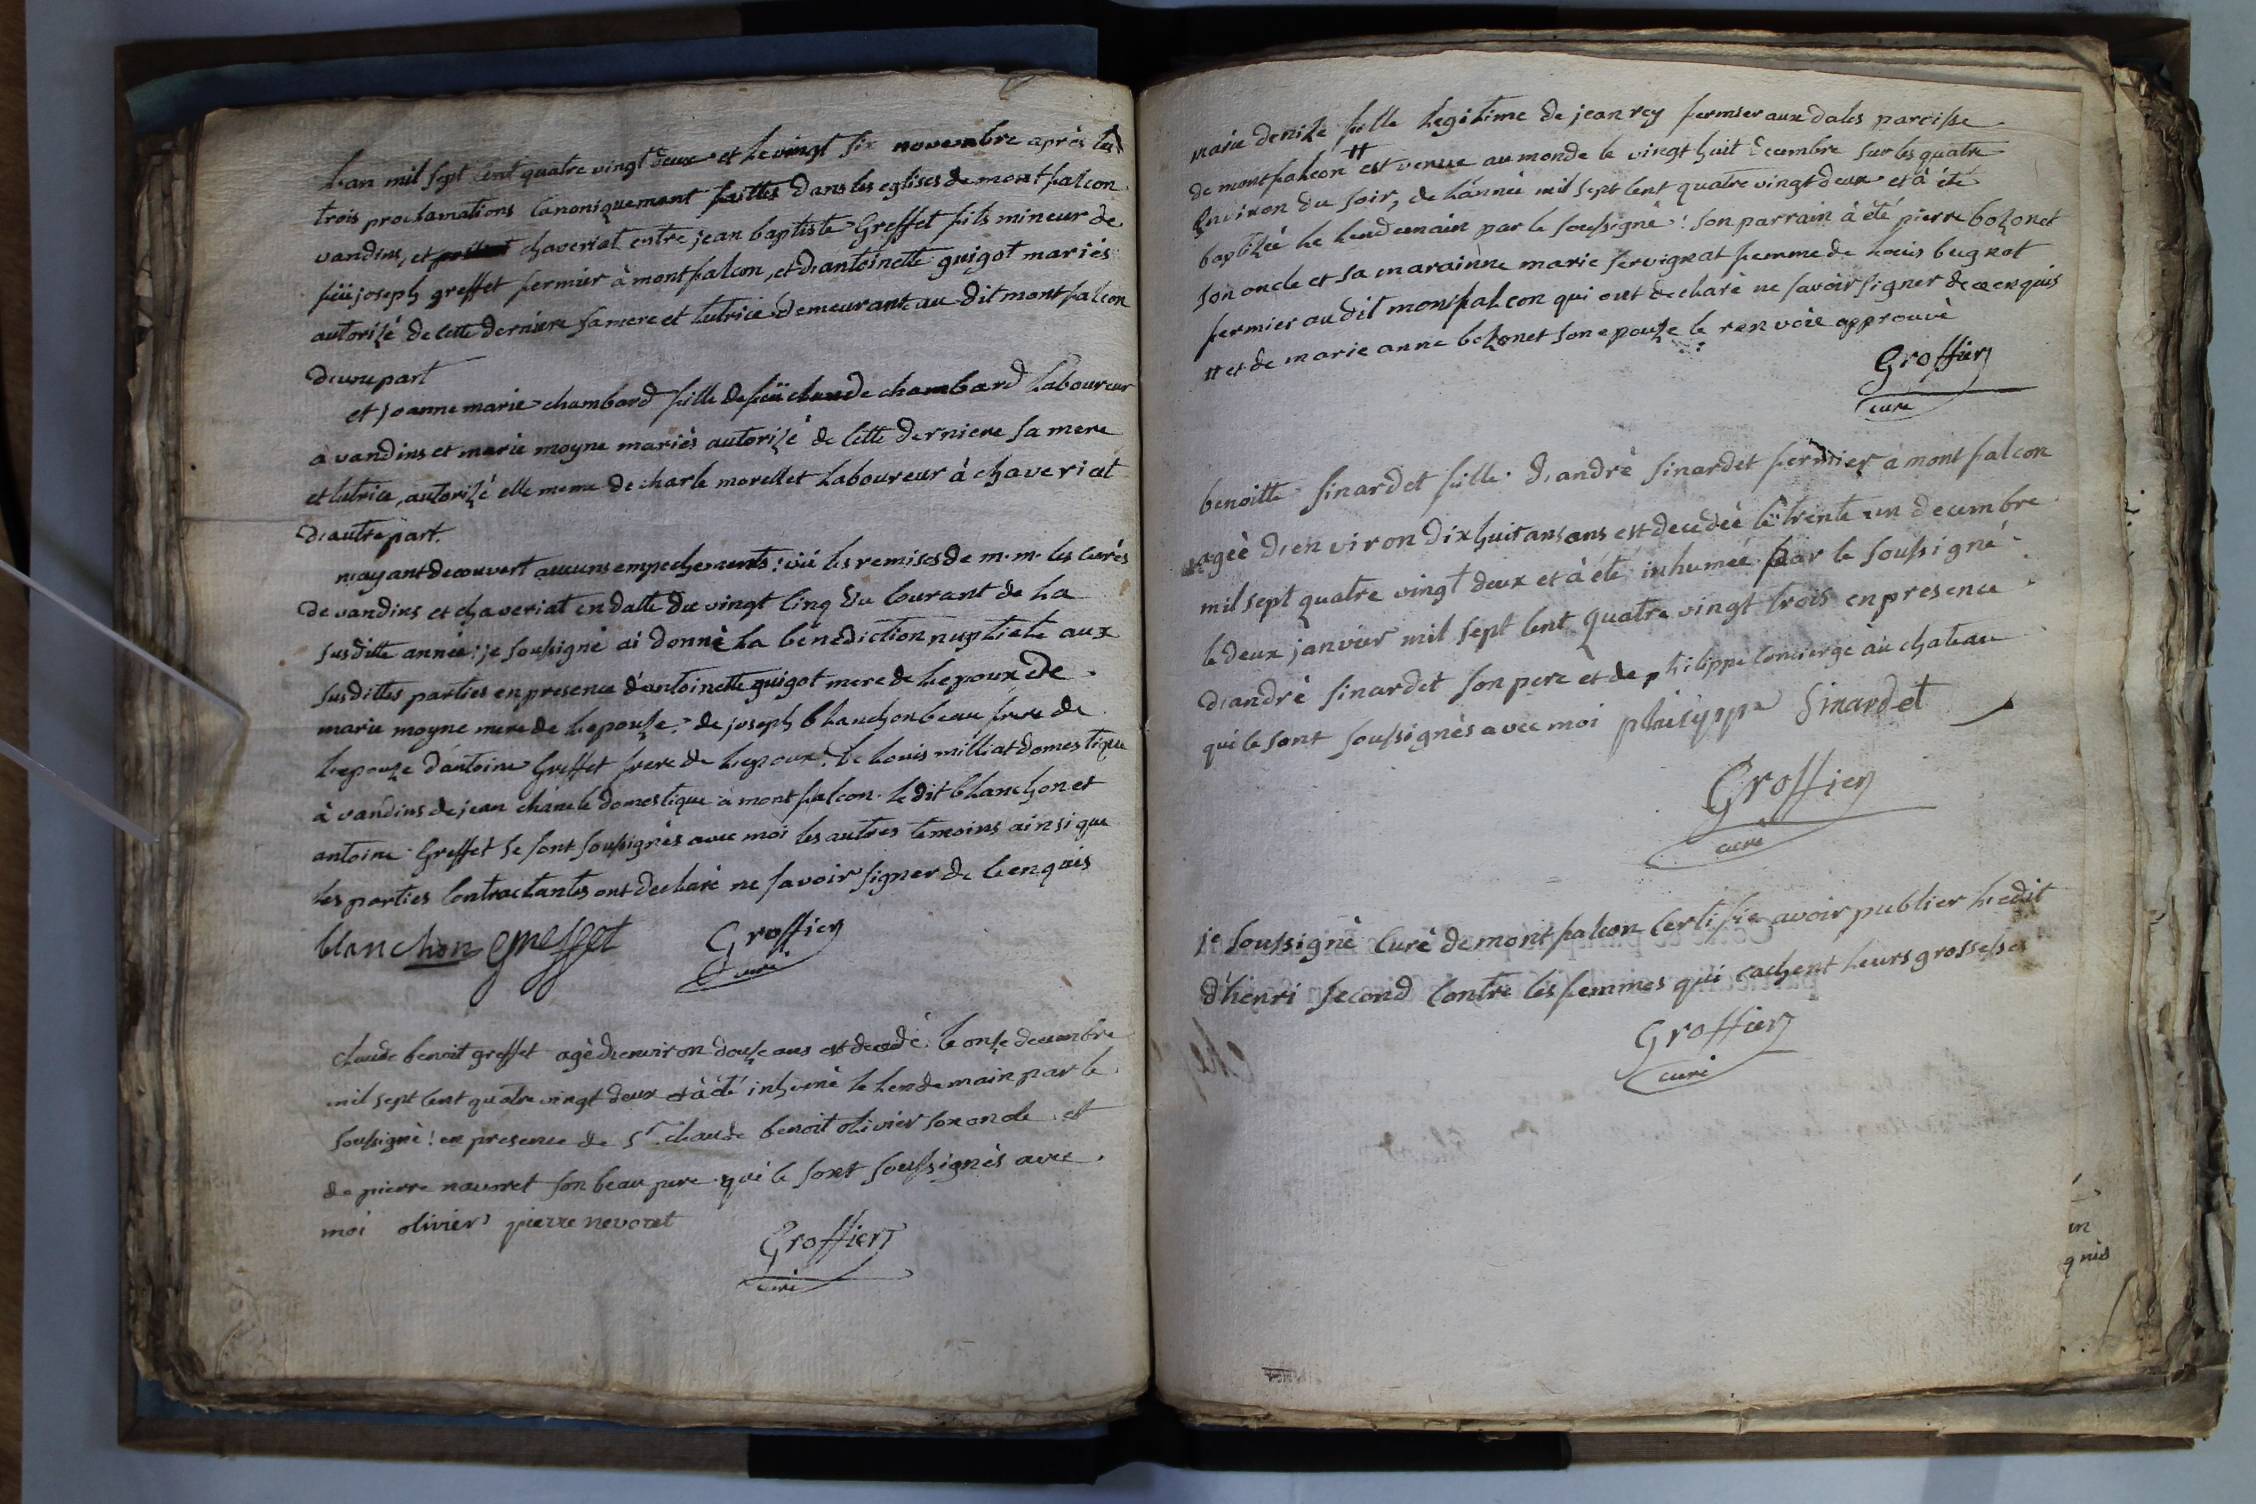 L'an mil sept cent quatre vingt deux et le vingt six novembre après les
trois proclamations Canoniquement faittes dans les eglises de montfalcon
vandins, et chaveriat entre jean baptiste Greffet fils mineur de
feü joseph greffet fermier à montfalcon, et d'antoinette guigot mariés
autorizé de cette derniere sa mere et tutrice demeurant au dit montfalcon
d'une part
et joanne marie chambard fille de feü claude chambard laboureur
à vandins et marie moyne mariés autorizé de cette derniere sa mere
et tutrice, autorizé elle meme de charle morellet laboureur à chaveriat
d'autre part.
n'ayant decouvert aucuns empechements: vü les remises de m.m. les curés
de vandins et chaveriat en datte du vingt cinq du courant de la
susditte année: je soussigné ai donné la bénédiction nuptiale aux
susdittes parties en presence d'antoinette guigot mere de l'epoux de
marie moyne mere de l'epouze, de joseph blanchon beau frere de
l'epouze d'antoine Greffet frere de l'epoux. de louis milliat domestique
à vandins de jean domestique à montfalcon. le dit blanchon et
antoine Greffet se sont soussignés avec moi les autres temoins ainsi que
les parties contractantes ont declaré ne savoir signer de ce enquis
blanchon greffet Groffier
curé
claude benoit greffet agé d'environ douze ans est decedé le onze decembre
mil sept cent quatre vingt deux et à été inhumé le lendemain par le
soussigné! en presence de Sr. claude benoit olivier son oncle et
de pierre navoret son beau pere qui se sont soussignés avec
moi olivier pierre nevoret
Groffier
curé
marie denize fille legitime de jean rey fermier aux dales paroisse
de montfalcon # est venue au monde le vingt huit decembre sur les quatre
Environ du soir, de l'année mil sept cent quatre vingt deux et à été
baptizée le lendemain par le soussigné! son parrain à été pierre bozonet
son oncle et sa marainne marie servignat femme de louis bugnot
fermier au dit monfalcon qui ont declaré ne savoir signer de ce enquis
# et de marie anne bozonet son epouze le renvoie approuvé
Groffier
curé
benoitte sinardet fille d'andrè sinardet fermier à montfalcon
agéè d'environ dix huit ans ans est decedéè le trente un decembre
mil sept quatre vingt deux et à été inhumée par le soussigné
le deux janvier mil sept cent quatre vingt trois en presence
d'andrè sinardet son pere et de philippe concierge aü chateau
qui se sont soussignés avec moi phliyppe Sinardet
Groffier
curé
je soussigné curé de montfalcon certifie avoir publier l'edit
d'henri second contre les femmes qui cachent leurs grossesses
Groffier
curé